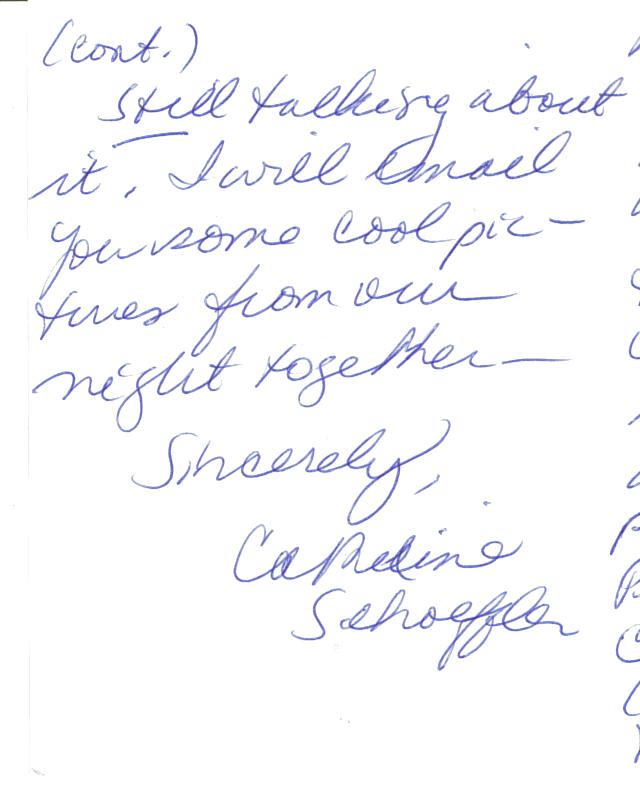 (cont.)
still talking about
it. I will email
you some cool pic-
tures from our
night together—
Sincerely,
Schoeffler